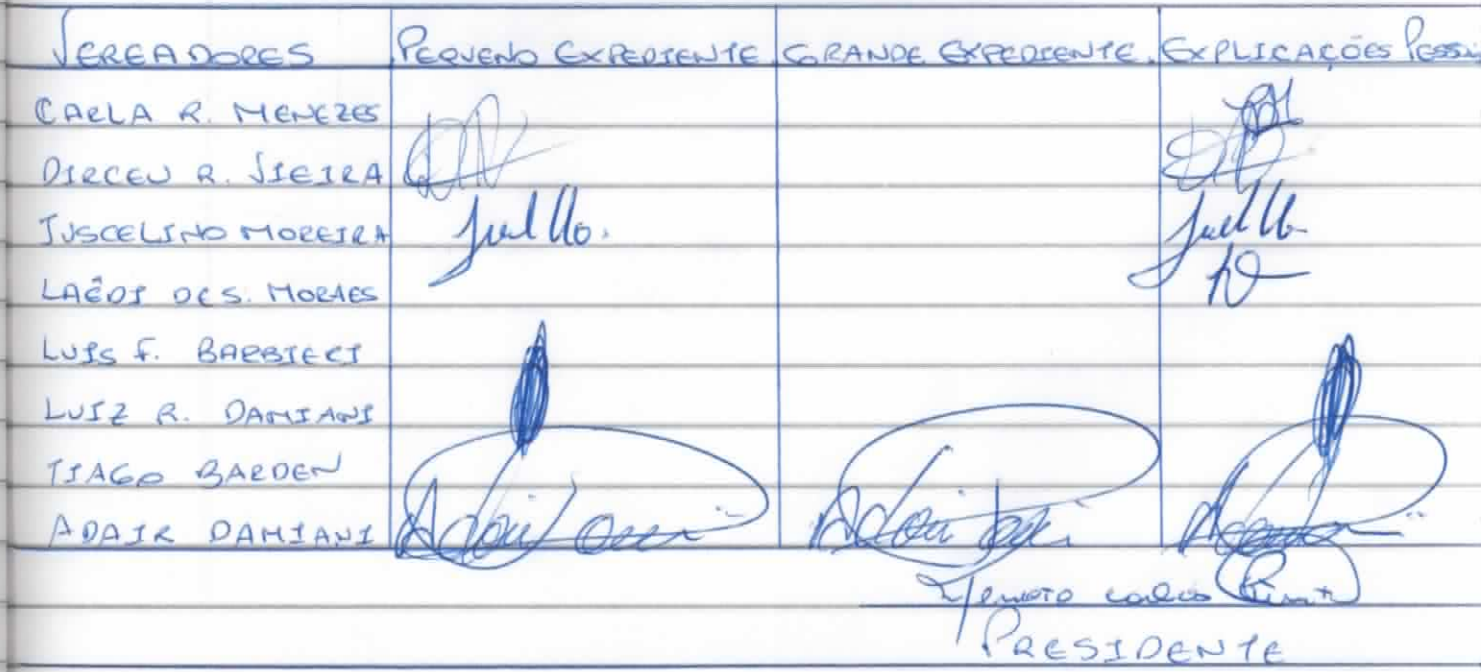 VEREADORES PEQUENO EXPEDIENTE GRANDE EXPEDIENTE. EXPLICAÇÕES PESSO
CARLA R. MENEZES
DIRCEU R. VIEIRA
JUSCELINO MOREIRA
LAÊDI DE S. MORAES
LUIS F. BARBIERI
LUIZ R. DAMIANI
TIAGO BARDEN
ADAIR DAMIANI
PRESIDENTE